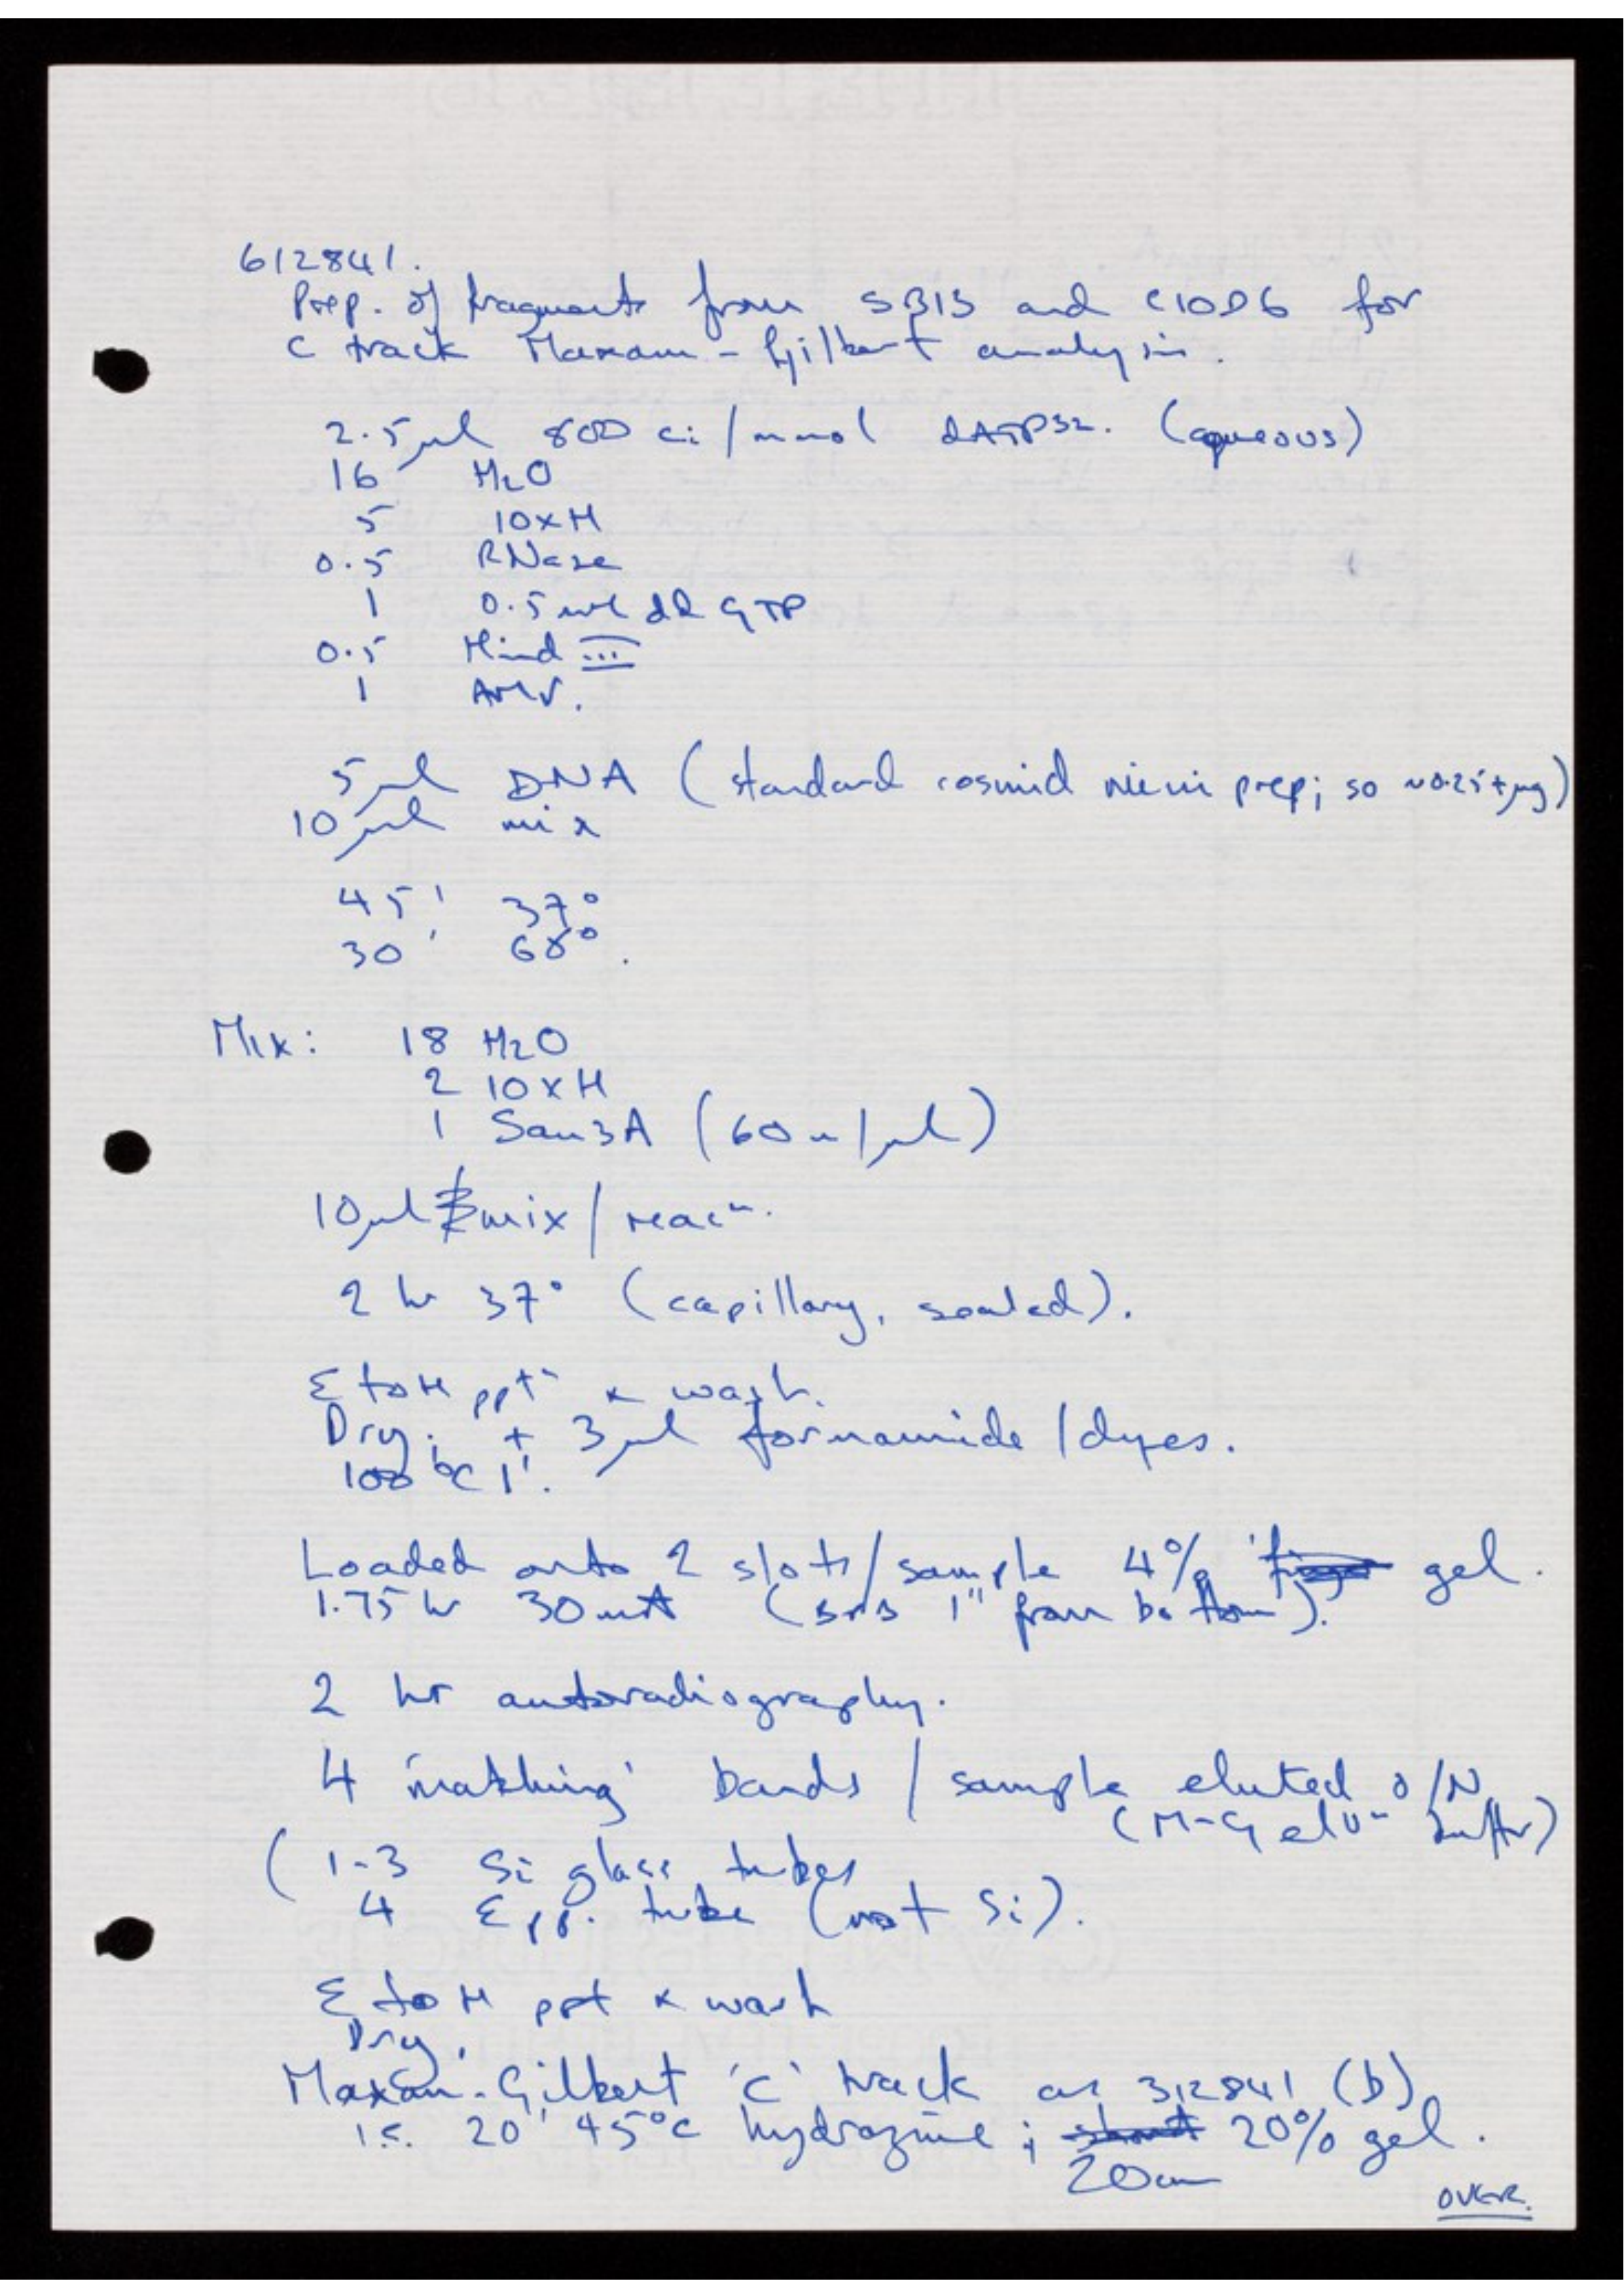 612841.
Prep. of fragments from 5B13 and C10D6 for
C track Maxam - Gilbert analysis.
2.5 µl 800 Ci/mmol dATP32. (aqueous)
16 H2O
5 10xH
0.5 RNase
1 0.5 mM dd GTP
0.5 Hind III
1 AMV.
5 µl DNA (standard cosmid mini prep; so ~0.25+µg)
10 µl mix
45' 37°
30' 68°.
Mix: 18 H2O
2 10xH
1 Sau3A (60 u/µl)
10 µl mix/reacn.
2 hr 37° (capillary, sealed).
EtoH pptn & wash.
Dry. + 3 µl formamide/dyes.
100°C 1'.
Loaded onto 2 slots/sample 4% gel.
1.75 hr 30 mA ( 1" from bottom).
2 hr autoradiography.
4 'matching' bands / sample eluted O/N
(M-G elun buffer)
(1-3 Si glass tubes
4 Epp. tube (not Si).
EtoH ppt & wash
Dry.
Maxam-Gilbert 'C' track as 312841 (b)
i.e. 20' 45°C hydrazine; 20% gel.
20cm
OVER.